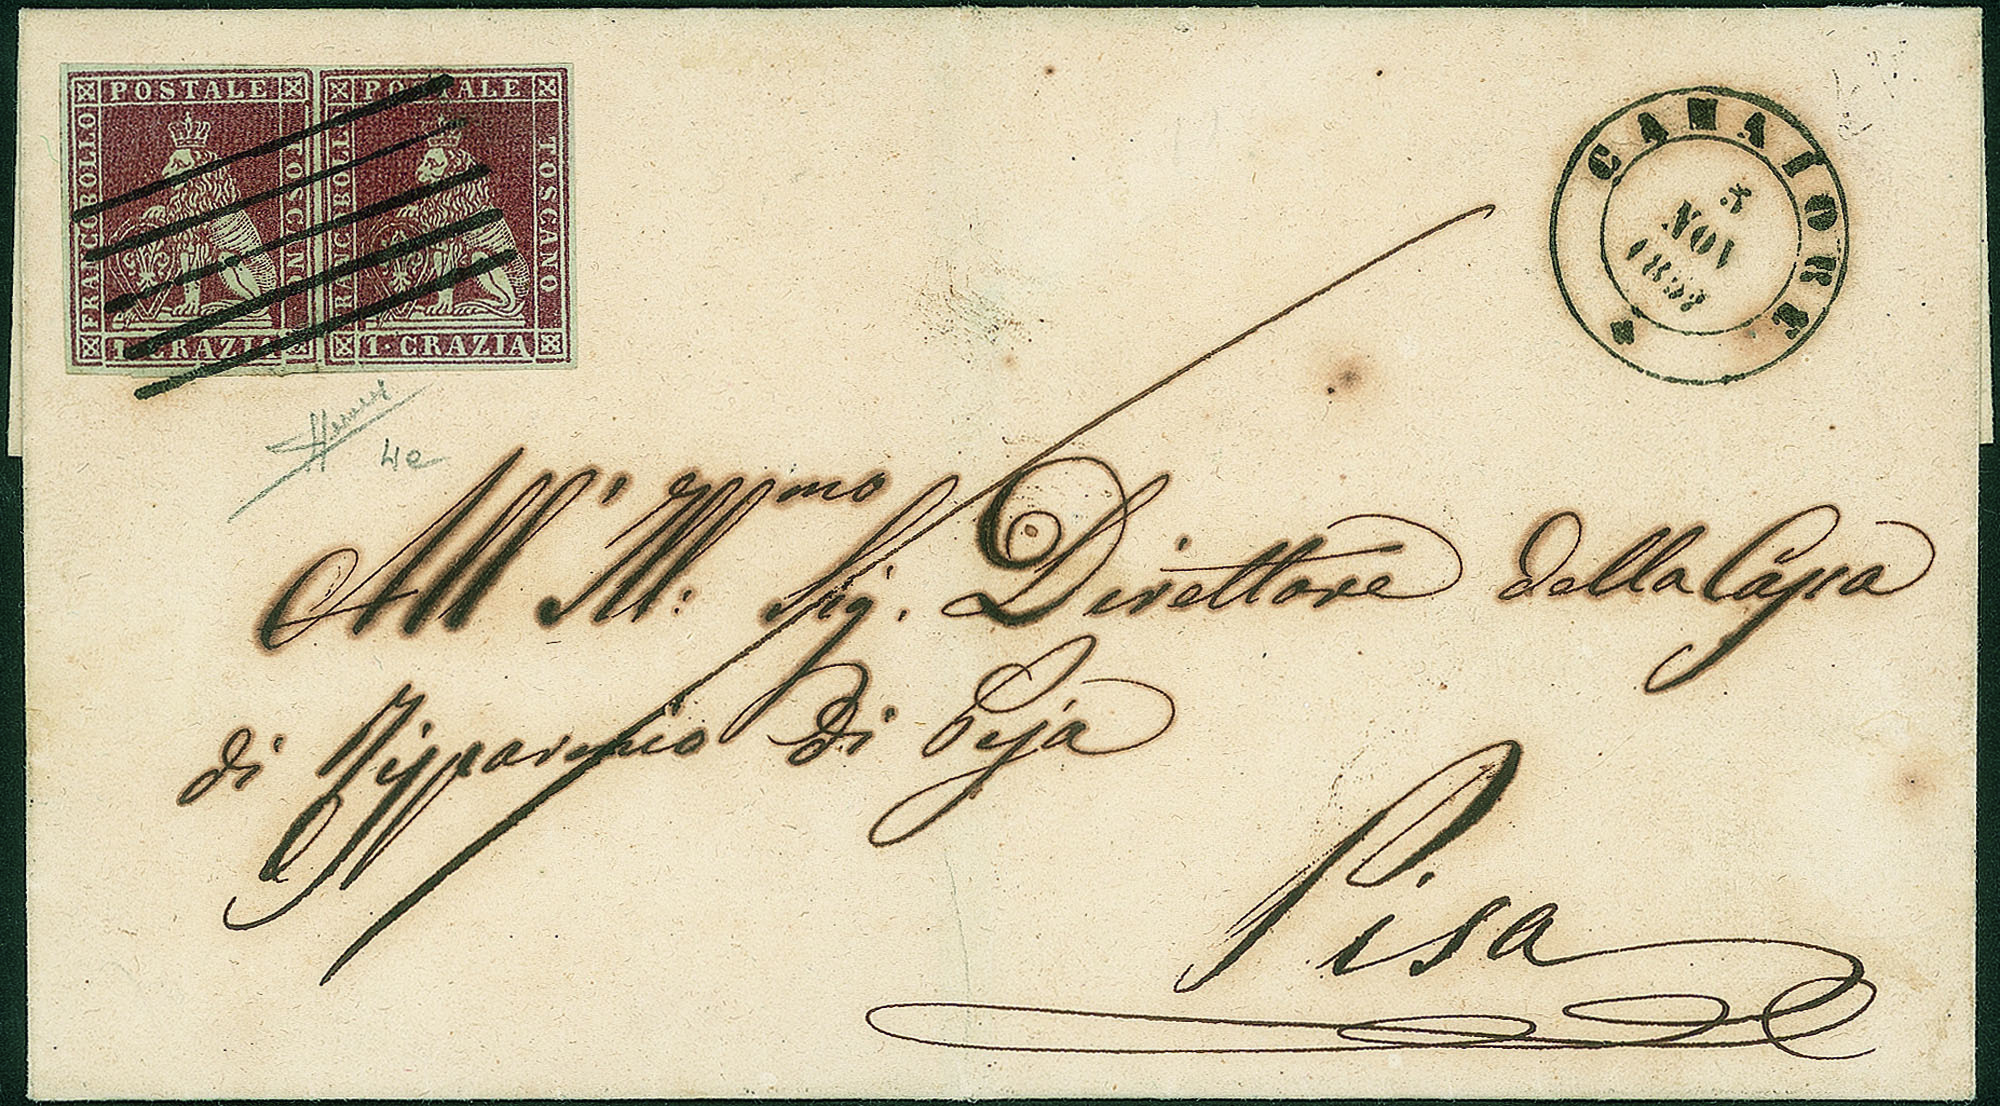 POSTALE
FRANCOBOLLO
TOSCANO
1·CRAZIA
POSTALE
FRANCOBOLLO
TOSCANO
1·CRAZIA
CAMAIORE
5
NOV
4e
All' Ill:mo Sig. Direttore della Cassa
di Risparmio di Pisa
Pisa